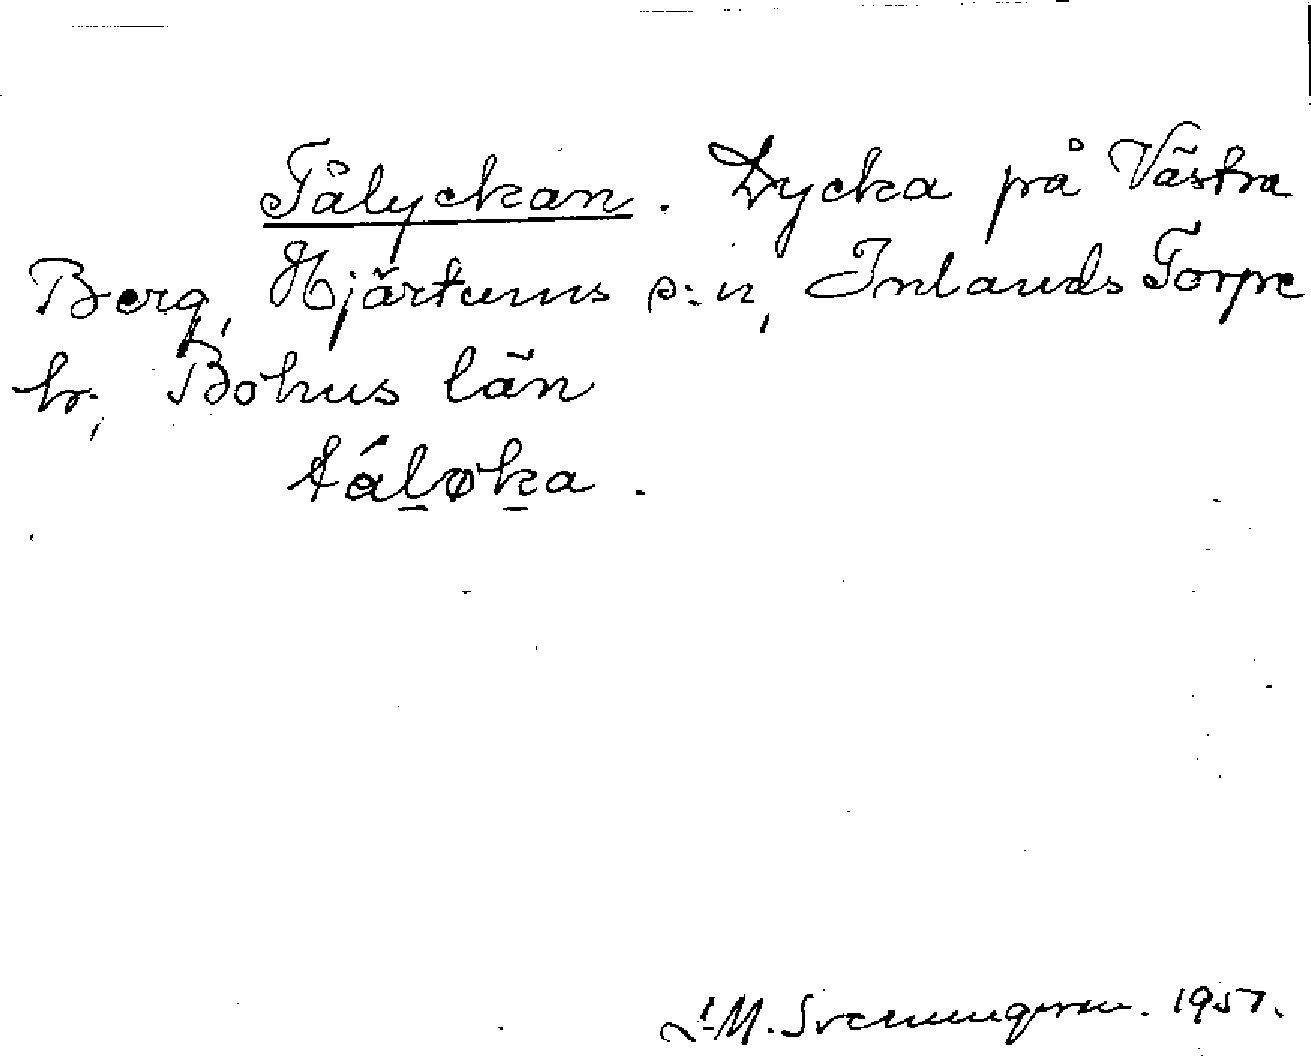 Tålyckan. Lycka på Västra
Berg, Hjärtums s:n, Inlands Torpe
hr, Bohus län
táḻøḵa.
L-M. Svenungsson. 1957.